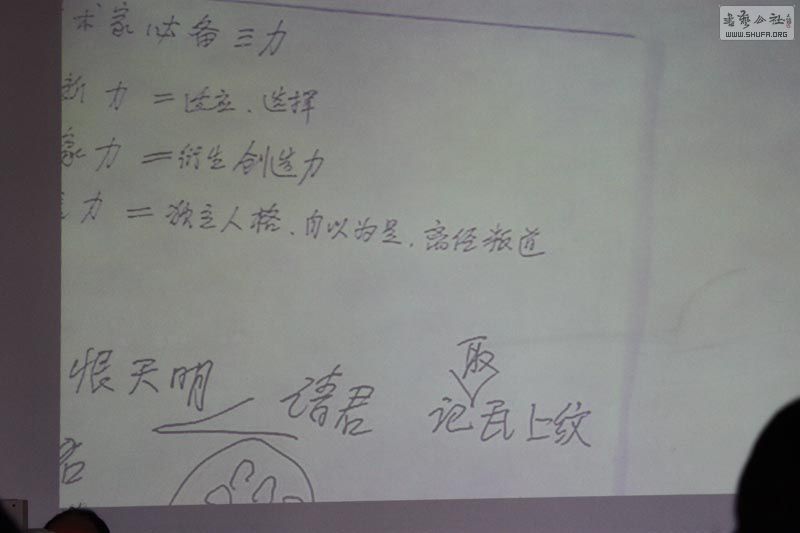 书艺公社
WWW.SHUFA.ORG
术家必备三力
断力 = 适应、选择
象力 = 衍生创造力
力 = 独立人格、自以为是、离经叛道
取
恨天明 请君 记瓦上纹